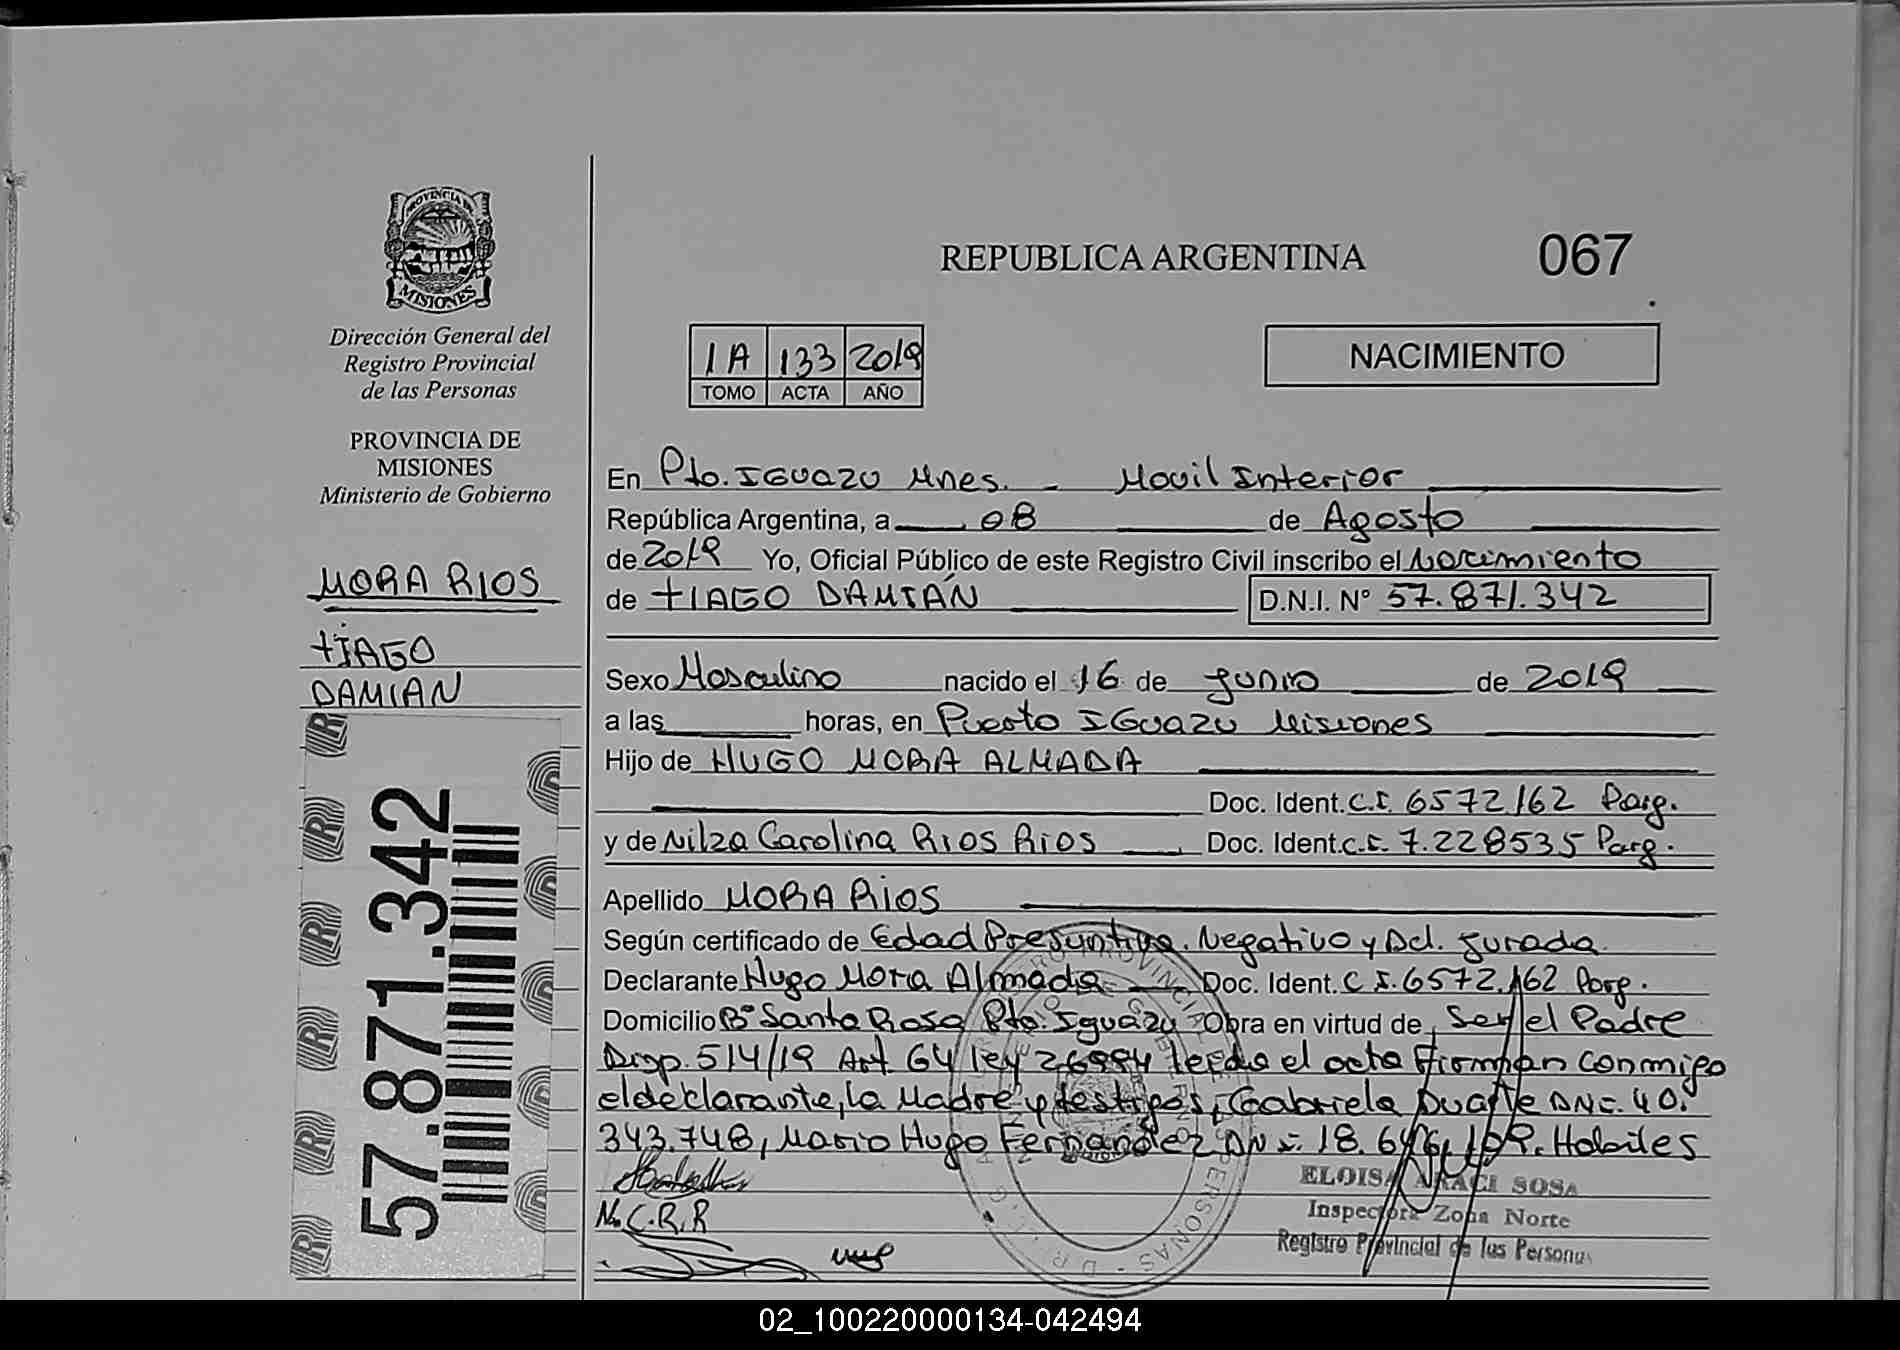 PROVINCIA DE
MISIONES
Dirección General del
Registro Provincial
de las Personas
PROVINCIA DE
MISIONES
Ministerio de Gobierno
MORA RIOS
TIAGO
DAMIAN
57.871.342
REPUBLICA ARGENTINA
067
1A 133 2019
TOMO ACTA AÑO
NACIMIENTO
En Pto. IGUAZU Mnes. - Movil Interior
República Argentina, a 08 de Agosto
de 2019 Yo, Oficial Público de este Registro Civil inscribo el Nacimiento
de TIAGO DAMIÁN D.N.I. N° 57.871.342
Sexo Masculino nacido el 16 de Junio de 2019
a las horas, en Puerto IGUAZU Misiones
Hijo de HUGO MORA ALMADA
Doc. Ident. C.I. 6572162 Parg.
y de Nilza Carolina RIOS RIOS Doc. Ident. C.I. 7.228535 Parg.
Apellido MORA RIOS
Según certificado de Edad Presuntiva, Negativo y Dcl. Jurada
Declarante Hugo Mora Almada Doc. Ident. C I. 6572.162 Parg.
Domicilio B° Santa Rosa Pto. Iguazu Obra en virtud de Ser el Padre
Disp. 514/19 Art. 64 ley 26994 leeda el acta Firman conmigo
el declarante, la Madre y testigos, Gabriela Duarte DNI. 40.
343.748, Mario Hugo Fernandez DNI. 18. Habiles
N. C. R. R
ELOISA ARACI SOSA
Inspectora Zona Norte
Registro Provincial de las Personas
02_100220000134-042494